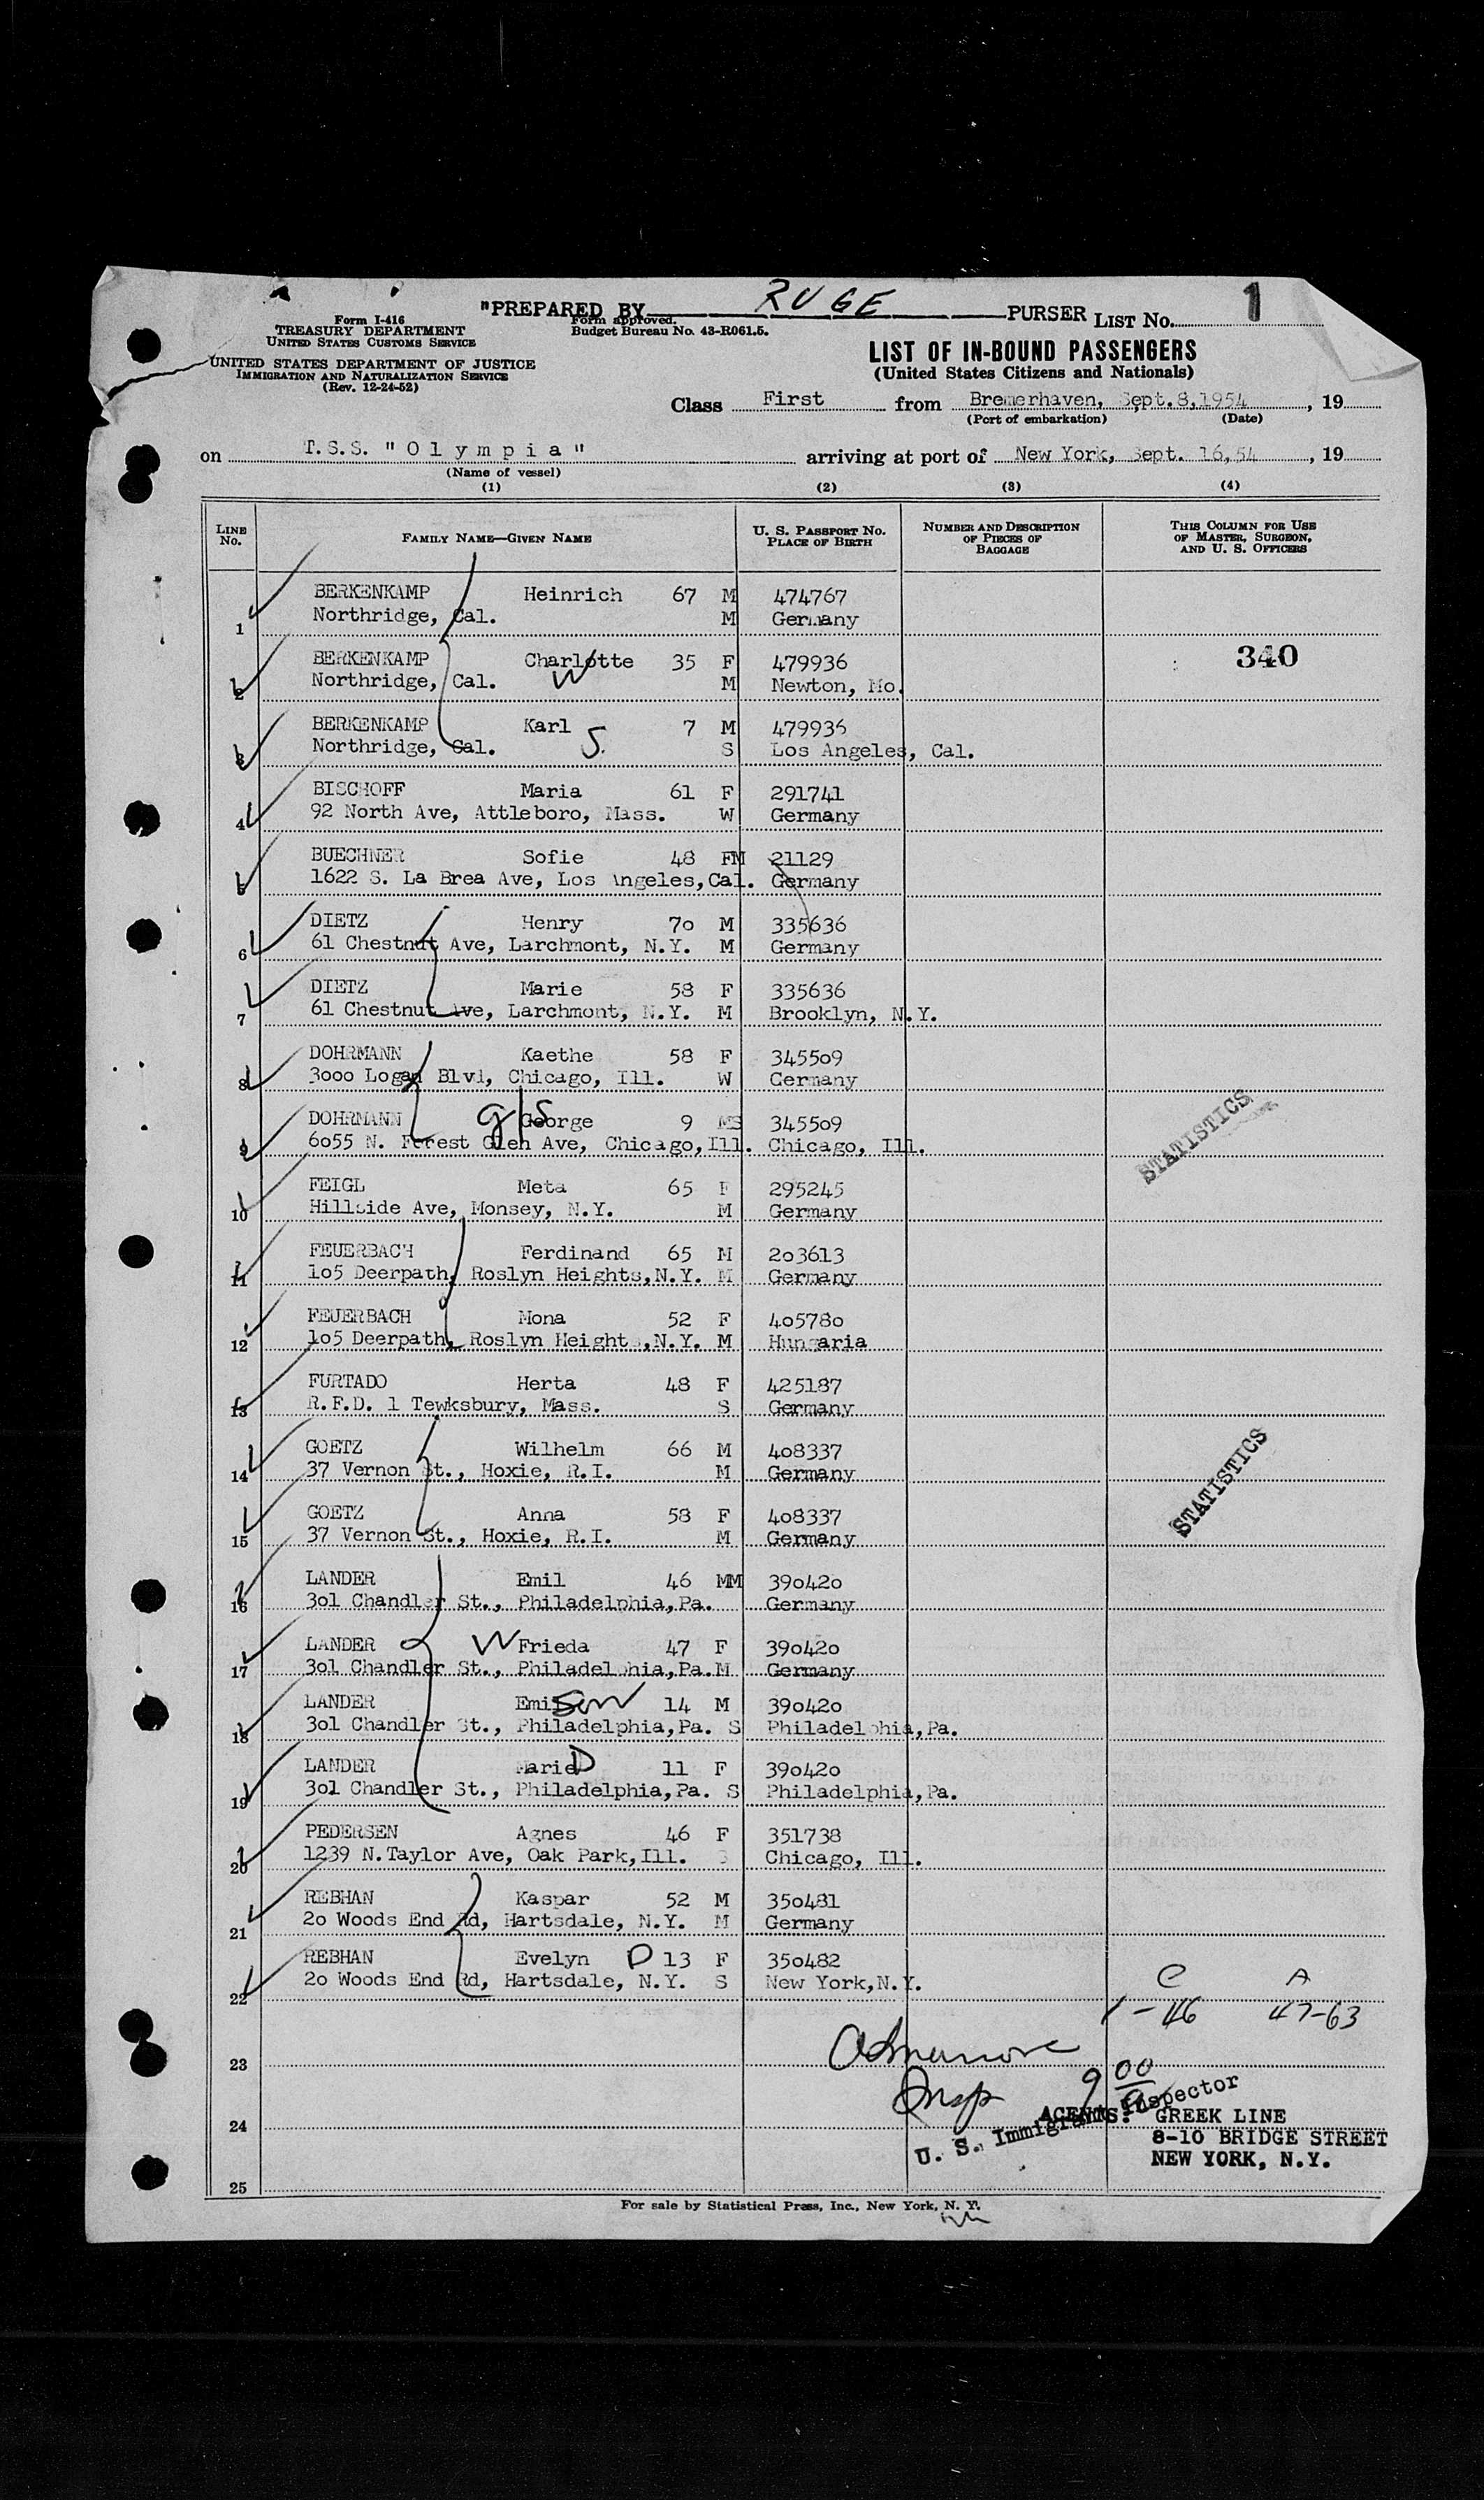 "PREPARED BY RUGE PURSER LIST No. 1
Form I-416
TREASURY DEPARTMENT
UNITED STATES CUSTOMS SERVICE
Form approved.
Budget Bureau No. 43-R061.5.
UNITED STATES DEPARTMENT OF JUSTICE
IMMIGRATION AND NATURALIZATION SERVICE
(Rev. 12-24-52)
LIST OF IN-BOUND PASSENGERS
(United States Citizens and Nationals)
Class First from Bremerhaven, Sept.8,1954, 19
(Port of embarkation) (Date)
on T.S.S. "Olympia" arriving at port of New York, Sept. 16,54, 19
(Name of vessel)
(1) (2) (3) (4)
LINE No. FAMILY NAME—GIVEN NAME U. S. PASSPORT NO. PLACE OF BIRTH NUMBER AND DESCRIPTION OF PIECES OF BAGGAGE THIS COLUMN FOR USE OF MASTER, SURGEON, AND U. S. OFFICERS
BERKENKAMP Heinrich 67 M 474767
1 Northridge, Cal. M Germany
BERKENKAMP Charlotte 35 F 479936 340
2 Northridge, Cal. W M Newton, Mo.
BERKENKAMP Karl 7 M 479936
3 Northridge, Cal. S. S Los Angeles, Cal.
BISCHOFF Maria 61 F 291741
4 92 North Ave, Attleboro, Mass. W Germany
BUECHNER Sofie 48 FM 21129
5 1622 S. La Brea Ave, Los Angeles, Cal. Germany
DIETZ Henry 70 M 335636
6 61 Chestnut Ave, Larchmont, N.Y. M Germany
DIETZ Marie 58 F 335636
7 61 Chestnut Ave, Larchmont, N.Y. M Brooklyn, N.Y.
DOHRMANN Kaethe 58 F 345509
8 3000 Logan Blvd, Chicago, Ill. W Germany
DOHRMANN g/s George 9 MS 345509
9 6055 N. Forest Glen Ave, Chicago, Ill. Chicago, Ill.
STATISTICS
FEIGL Meta 65 F 295245
10 Hillside Ave, Monsey, N.Y. M Germany
FEUERBACH Ferdinand 65 M 203613
11 105 Deerpath, Roslyn Heights, N.Y. M Germany
FEUERBACH Mona 52 F 405780
12 105 Deerpath, Roslyn Heights, N.Y. M Hungaria
FURTADO Herta 48 F 425187
13 R.F.D. 1 Tewksbury, Mass. S Germany
GOETZ Wilhelm 66 M 408337
14 37 Vernon St., Hoxie, R.I. M Germany
STATISTICS
GOETZ Anna 58 F 408337
15 37 Vernon St., Hoxie, R.I. M Germany
LANDER Emil 46 MM 390420
16 301 Chandler St., Philadelphia, Pa. Germany
LANDER W Frieda 47 F 390420
17 301 Chandler St., Philadelphia, Pa. M Germany
LANDER Emil Son 14 M 390420
18 301 Chandler St., Philadelphia, Pa. S Philadelphia, Pa.
LANDER Marie D 11 F 390420
19 301 Chandler St., Philadelphia, Pa. S Philadelphia, Pa.
PEDERSEN Agnes 46 F 351738
20 1239 N. Taylor Ave, Oak Park, Ill. S Chicago, Ill.
REBHAN Kaspar 52 M 350481
21 20 Woods End Rd, Hartsdale, N.Y. M Germany
REBHAN Evelyn D 13 F 350482
22 20 Woods End Rd, Hartsdale, N.Y. S New York, N.Y.
C A
1-46 47-63
23
Insp 9 00
24
U. S. Immigrant Inspector
AGENTS: GREEK LINE
8-10 BRIDGE STREET
NEW YORK, N.Y.
25
For sale by Statistical Press, Inc., New York, N. Y.